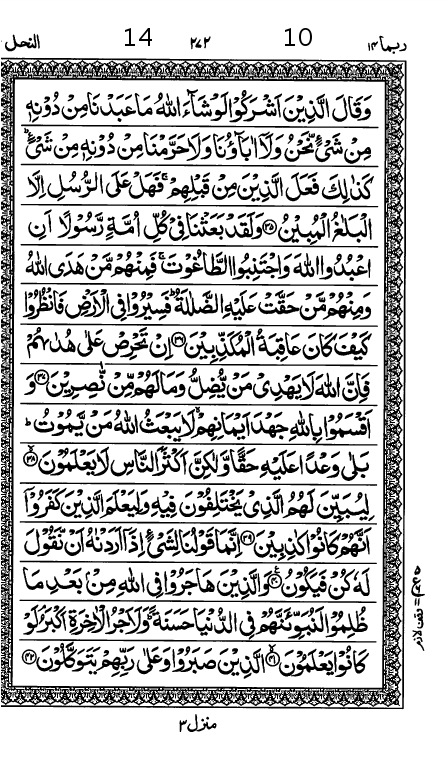 ربما ١٤ 10 ٢٧٢ 14 النحل
وَقَالَ الَّذِيْنَ اَشْرَكُوْا لَوْ شَآءَ اللّٰهُ مَا عَبَدْنَا مِنْ دُوْنِهٖ
مِنْ شَيْءٍ نَّحْنُ وَلَاۤ اٰبَآؤُنَا وَلَا حَرَّمْنَا مِنْ دُوْنِهٖ مِنْ شَيْءٍ ؕ
كَذٰلِكَ فَعَلَ الَّذِيْنَ مِنْ قَبْلِهِمْ ۚ فَهَلْ عَلَى الرُّسُلِ اِلَّا
الْبَلٰغُ الْمُبِيْنُ ﴿٣٥﴾ وَلَقَدْ بَعَثْنَا فِيْ كُلِّ اُمَّةٍ رَّسُوْلًا اَنِ
اعْبُدُوا اللّٰهَ وَاجْتَنِبُوا الطَّاغُوْتَ ۚ فَمِنْهُمْ مَّنْ هَدَى اللّٰهُ
وَمِنْهُمْ مَّنْ حَقَّتْ عَلَيْهِ الضَّلٰلَةُ ؕ فَسِيْرُوْا فِي الْاَرْضِ فَانْظُرُوْا
كَيْفَ كَانَ عَاقِبَةُ الْمُكَذِّبِيْنَ ﴿٣٦﴾ اِنْ تَحْرِصْ عَلٰى هُدٰىهُمْ
فَاِنَّ اللّٰهَ لَا يَهْدِيْ مَنْ يُّضِلُّ وَمَا لَهُمْ مِّنْ نّٰصِرِيْنَ ﴿٣٧﴾ وَ
اَقْسَمُوْا بِاللّٰهِ جَهْدَ اَيْمَانِهِمْ ۙ لَا يَبْعَثُ اللّٰهُ مَنْ يَّمُوْتُ ؕ
بَلٰى وَعْدًا عَلَيْهِ حَقًّا وَّلٰكِنَّ اَكْثَرَ النَّاسِ لَا يَعْلَمُوْنَ ﴿٣٨﴾
لِيُبَيِّنَ لَهُمُ الَّذِيْ يَخْتَلِفُوْنَ فِيْهِ وَلِيَعْلَمَ الَّذِيْنَ كَفَرُوْۤا
اَنَّهُمْ كَانُوْا كٰذِبِيْنَ ﴿٣٩﴾ اِنَّمَا قَوْلُنَا لِشَيْءٍ اِذَاۤ اَرَدْنٰهُ اَنْ نَّقُوْلَ
لَهٗ كُنْ فَيَكُوْنُ ﴿٤٠﴾ وَالَّذِيْنَ هَاجَرُوْا فِي اللّٰهِ مِنْ بَعْدِ مَا
ظُلِمُوْا لَنُبَوِّئَنَّهُمْ فِي الدُّنْيَا حَسَنَةً ؕ وَلَاَجْرُ الْاٰخِرَةِ اَكْبَرُ ۘ لَوْ
كَانُوْا يَعْلَمُوْنَ ﴿٤١﴾ الَّذِيْنَ صَبَرُوْا وَعَلٰى رَبِّهِمْ يَتَوَكَّلُوْنَ ﴿٤٢﴾
وقف لازم
منزل ٣